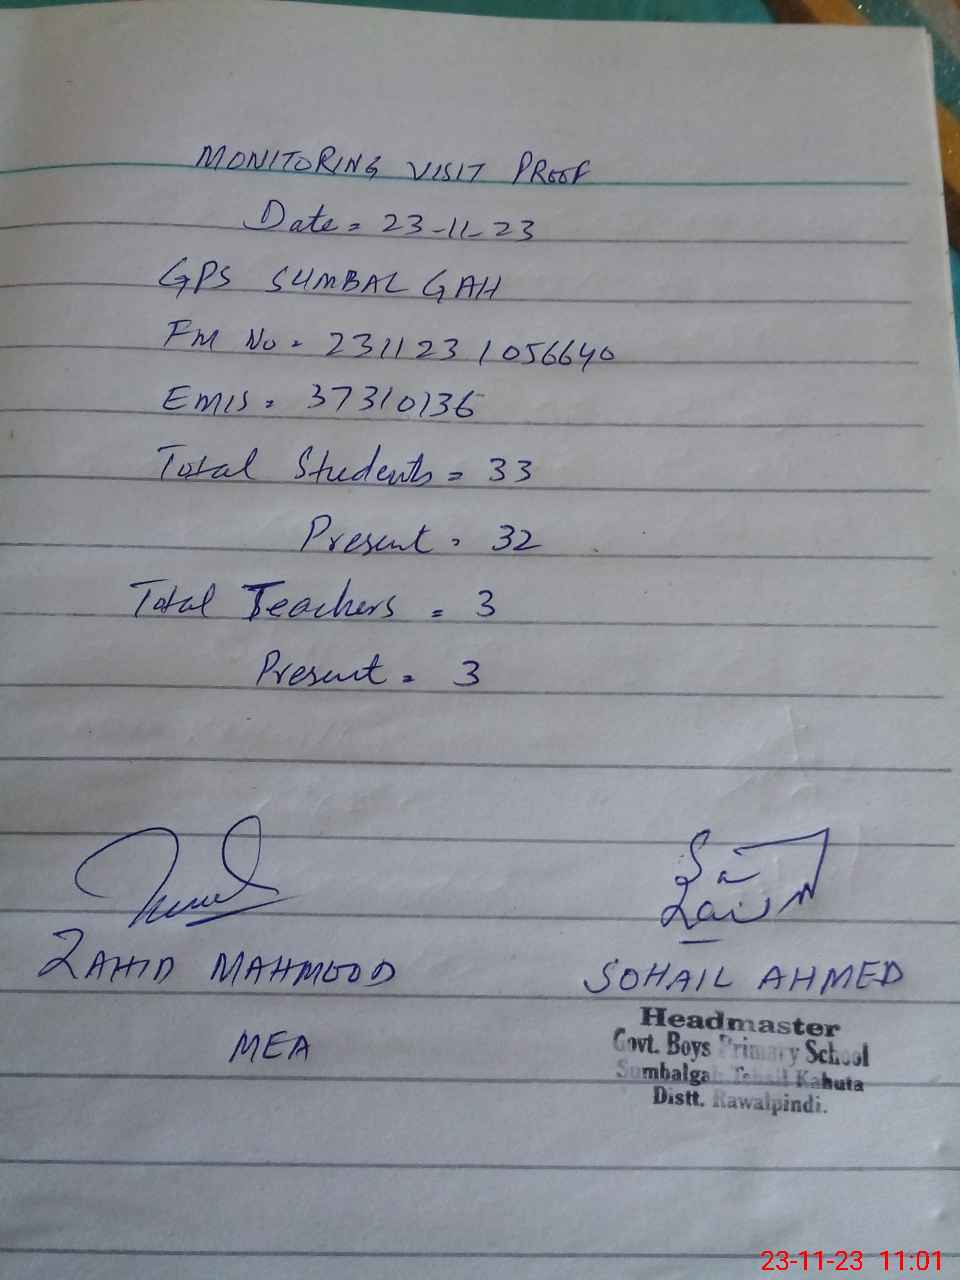 MONITORING VISIT PROOF
Date = 23-11-23
GPS SUMBAL GAH
FM No = 2311231056640
EMIS = 37310136
Total Students = 33
Present = 32
Total Teachers = 3
Present = 3
ZAHID MAHMOOD
MEA
SOHAIL AHMED
Headmaster
Govt. Boys Primary School
Sumbalgah Tehsil Kahuta
Distt. Rawalpindi.
23-11-23 11:01